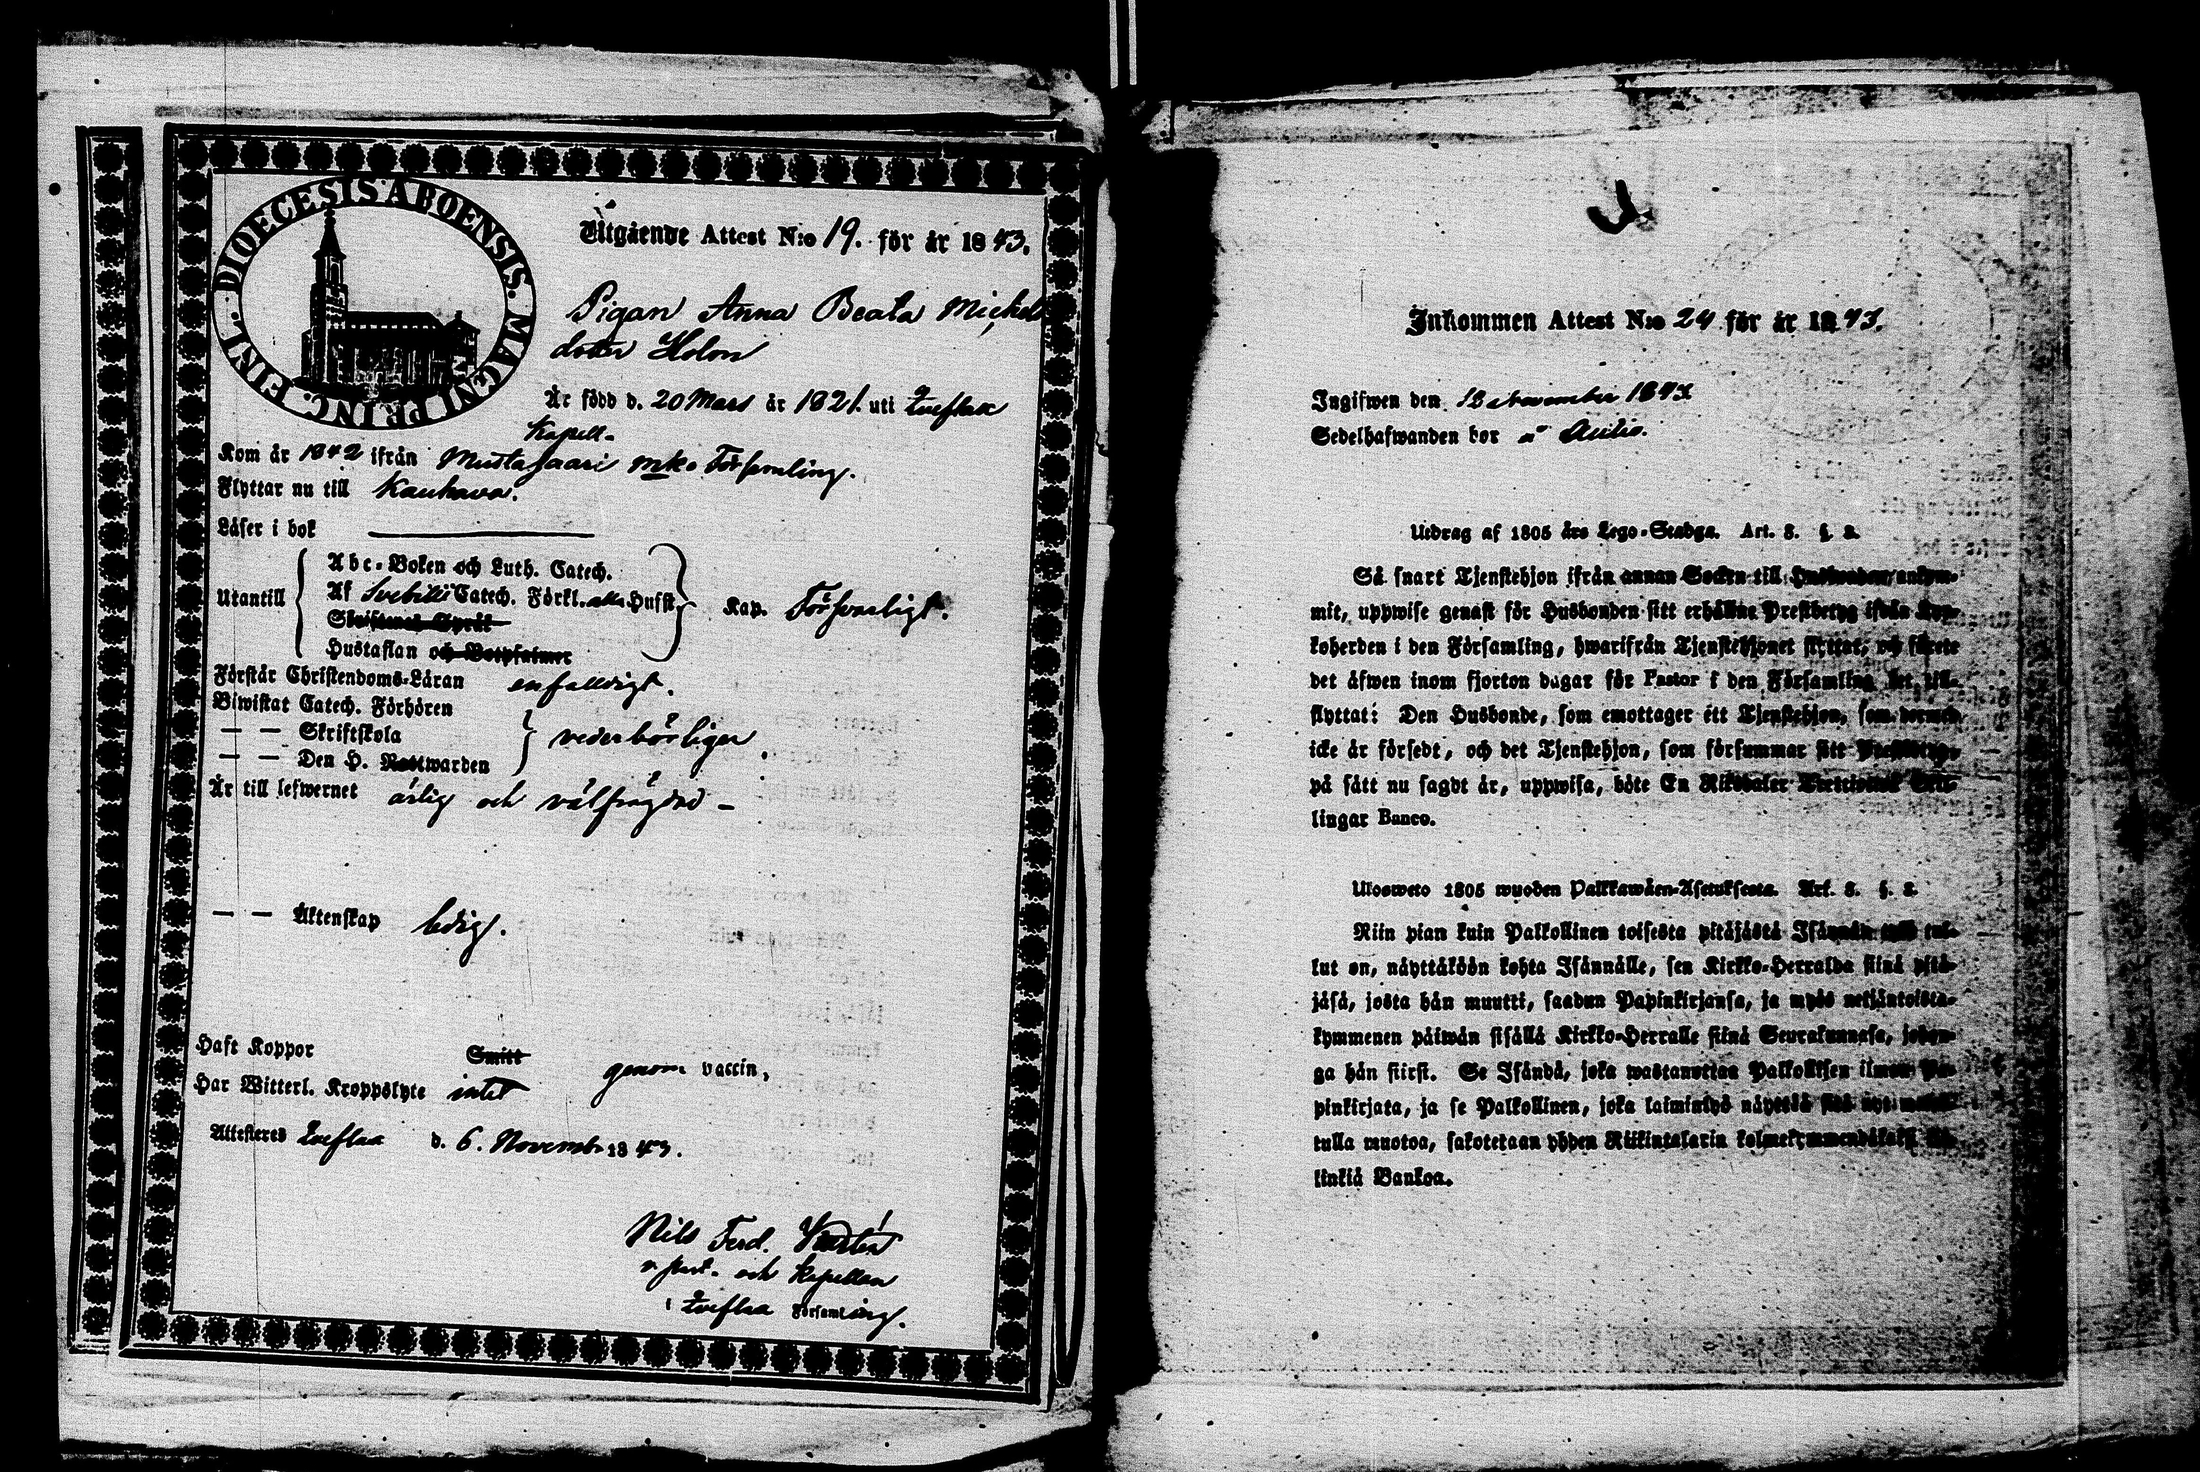 DIOECESIS ABOENSIS. MAGNI PRINC. FINL.
Utgående Attest N:o 19. för år 1843.
Pigan Anna Beata Michels
dotter Holon
Är född d. 20 Mars år 1821. uti Qveflax
Kapell-
Kom år 1842 ifrån Mustasaari Församling.
Flyttar nu till Kauhava.
Läser i bok
Utantill
Abc-Boken och Luth. Catech.
Af Svebilii Catech. Förkl. Husst.
Skriftenes Språk
Hustaflan och Botpsalmer
Kap. Försvarligt.
Förstår Christendoms-Läran enfalldigt.
Biwistat Catech. Förhören
— — Skriftskola
— — Den H. Nattwarden
vederbörligen
Är till lefwernet ärlig och välfrägdad —
— — Äktenskap ledig.
Haft Koppor Smitt genom vaccin,
Har Witterl. Kroppslyte intet
Attesteras Qveflax d. 6. Novembr 1843.
Nils Ferd.
v. past. och Kapellan
i Qveflax Församling.
Inkommen Attest N:o 24 för år 1843.
Ingifwen den 12 November 1843
Sedelhafwanden bor å Autio.
Utdrag af 1805 års Lego-Stadga. Art. 8. §. 2.
Så snart Tjenstehjon ifrån annan Socken till Husbonden ankom-
mit, uppwise genast för Husbonden sitt erhållne Prestbetyg ifrån Kyr-
koherden i den Församling, hwarifrån Tjenstehjonet flyttat, och förete
det äfwen inom fjorton dagar för Pastor i den Församling det till-
flyttat: Den Husbonde, som emottager ett Tjenstehjon, som dermed
icke är försedt, och det Tjenstehjon, som försummar sitt Prestbetyg,
på sätt nu sagdt är, uppwisa, böte En Riksdaler
lingar Banco.
Ulosweto 1805 wuoden Palkkawäen-Asetuksesta. Art. 8. §. 2.
Niin pian kuin Palkollinen toisesta pitäjästä Isännän tul-
lut on, näyttäköön kohta Isännälle, sen Kirkko-Herralda siinä pitä-
jäsä, josta hän muutti, saadun Papinkirjansa, ja myös neljäntoista-
kymmenen päiwän sisällä Kirkko-Herralle siinä Seurakunnasa, johon-
ga hän siirsi. Se Isändä, joka wastanottaa Palkollisen ilman Pa-
pinkirjata, ja se Palkollinen, joka laiminlyö näyttää sitä nyt
tulla muotoa, sakotetaan yhden Riikintalarin kolmekymmendäkaksi Kil-
linkiä Bankoa.